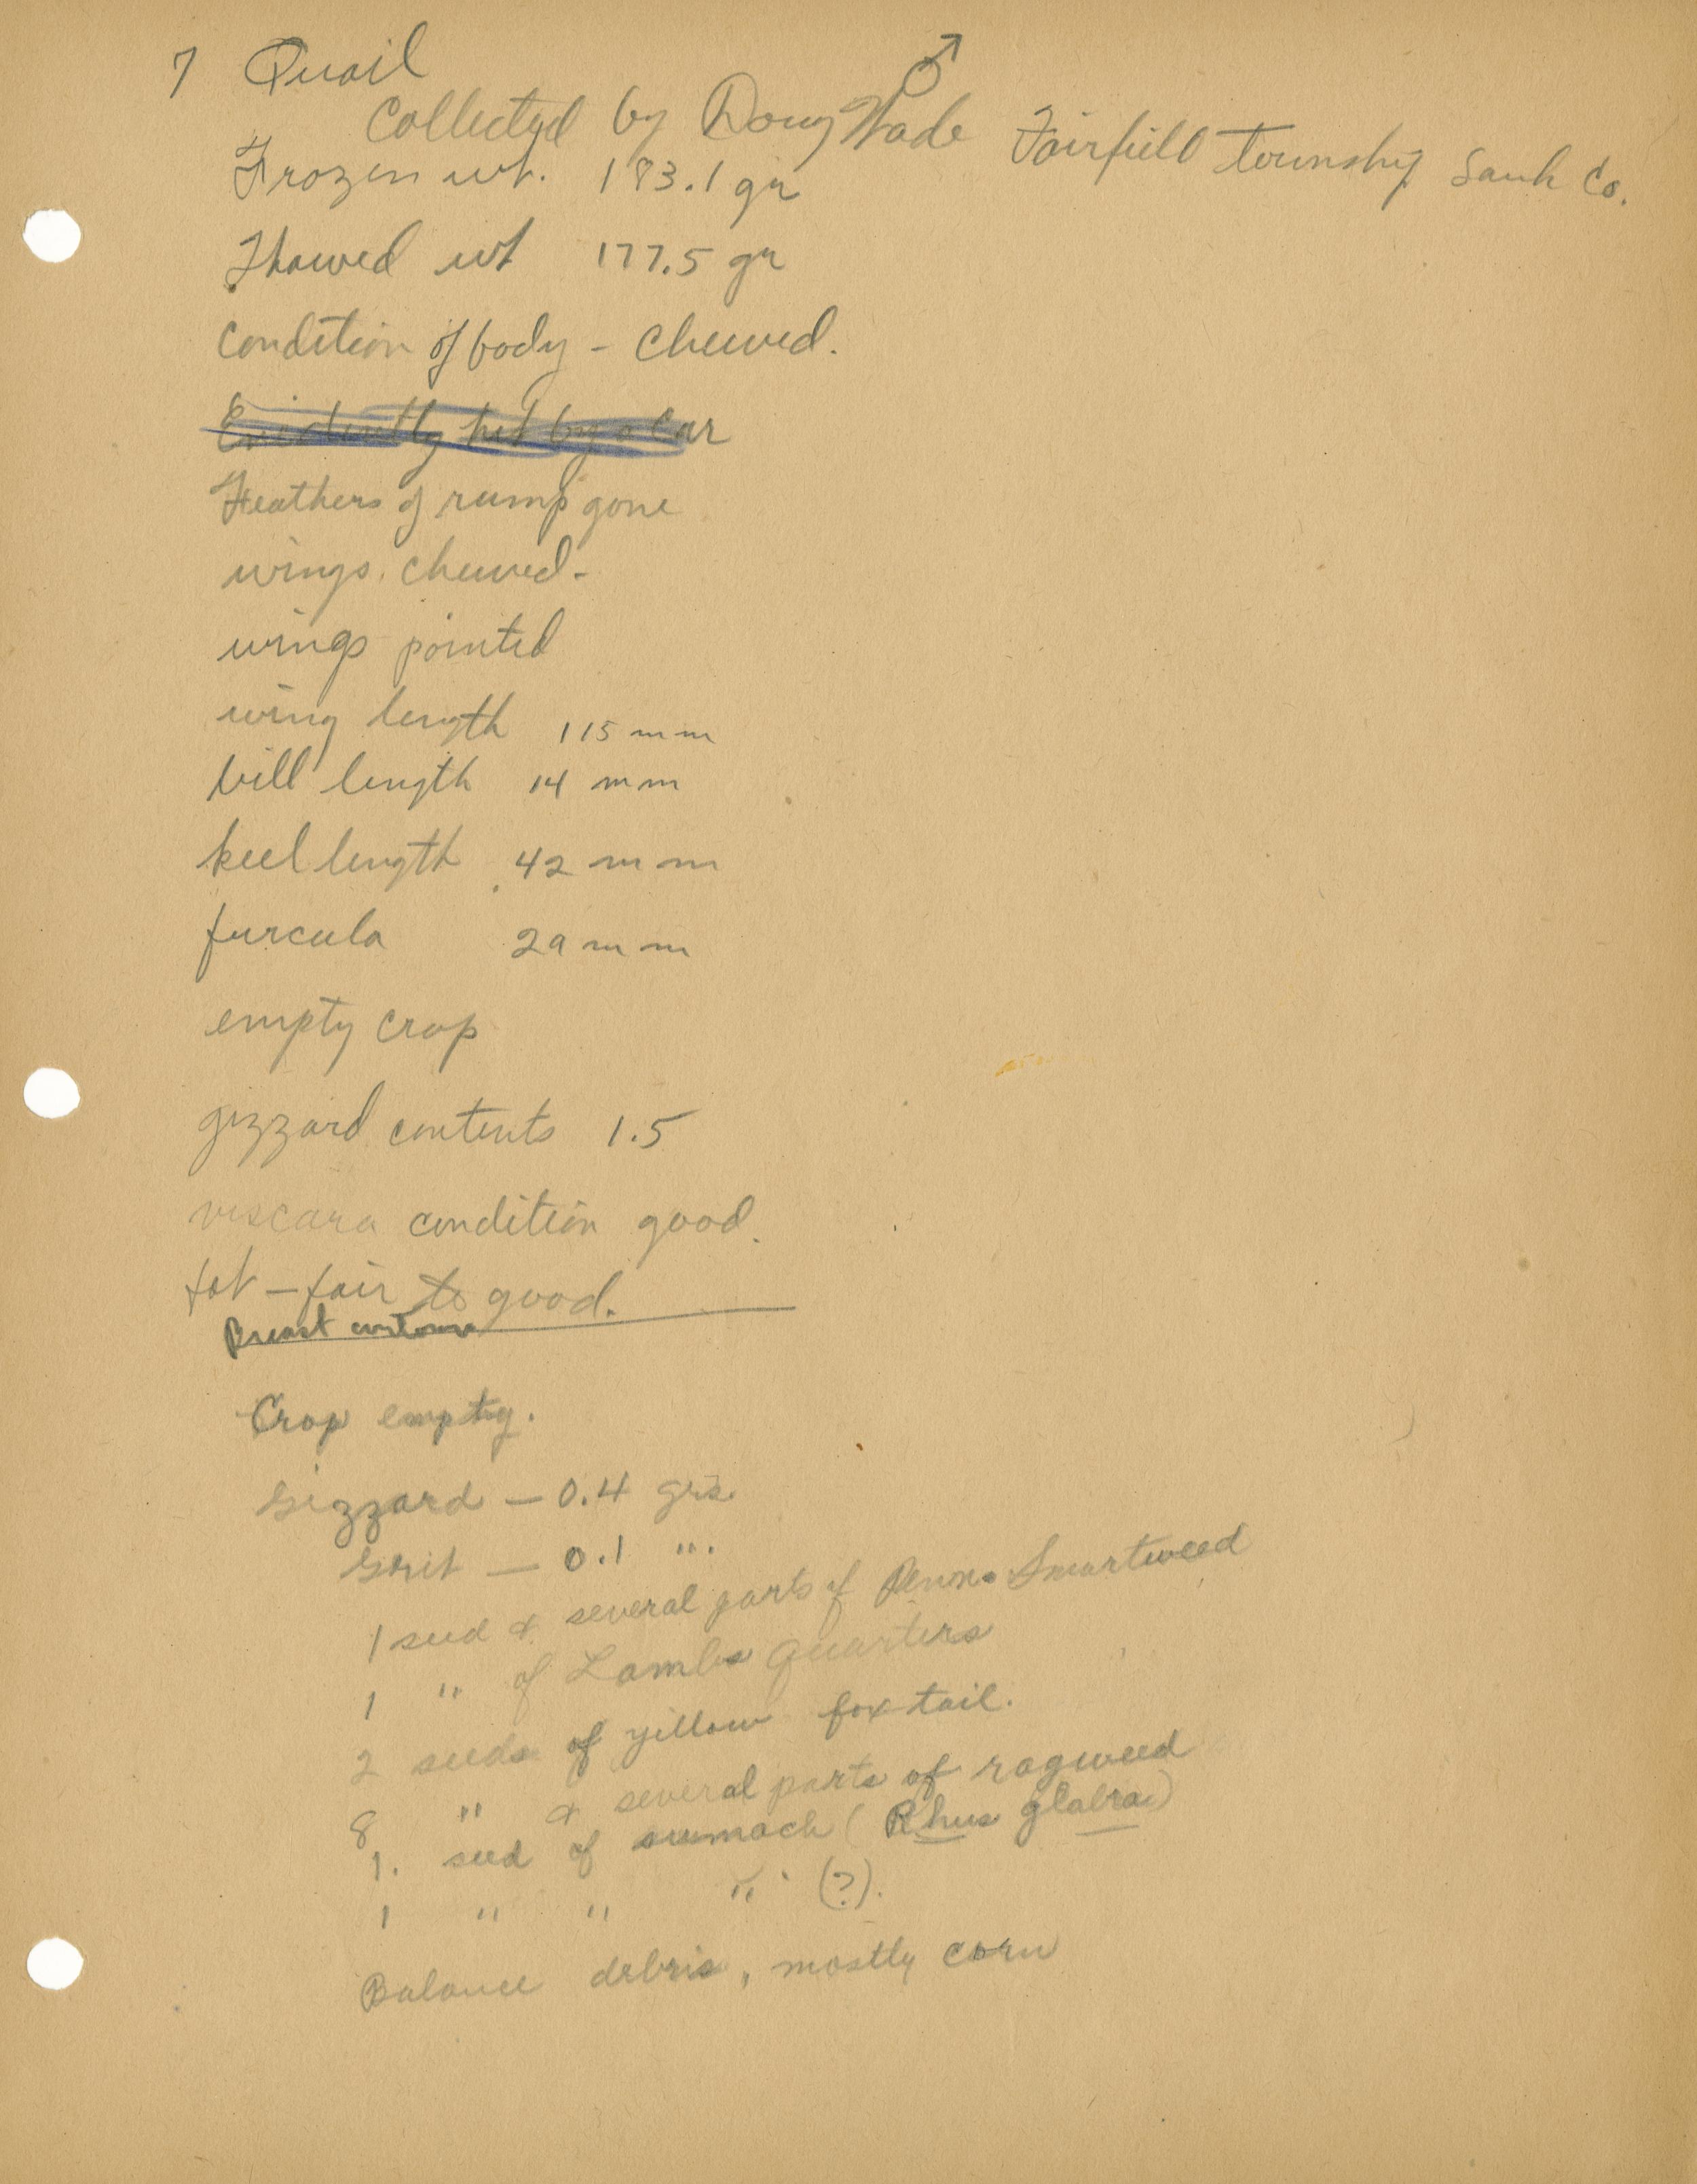 7 Quail ♂
Collected by Doug Wade Fairfield township Sauk Co.
Frozen wt. 183.1 gr
Thawed wt 177.5 gr
Condition of body - Chewed.
Evidently hit by a Car
Feathers of rump gone
wings. chewed-
wings pointed
wing length 115 mm
bill length 14 mm
keel length 42 mm
furcula 29 mm
empty crop
gizzard contents 1.5
viscara condition good.
fat - fair to good.
Breast contour
Crop empty.
Gizzard — 0.4 grs.
Grit — 0.1 ".
1 seed & several parts of Penn. Smartweed
1 " of Lambs Quarters
2 seeds of yellow foxtail.
8 " & several parts of ragweed
1. seed of sumach (Rhus glabra)
1 " " " (?).
Balance debris, mostly corn